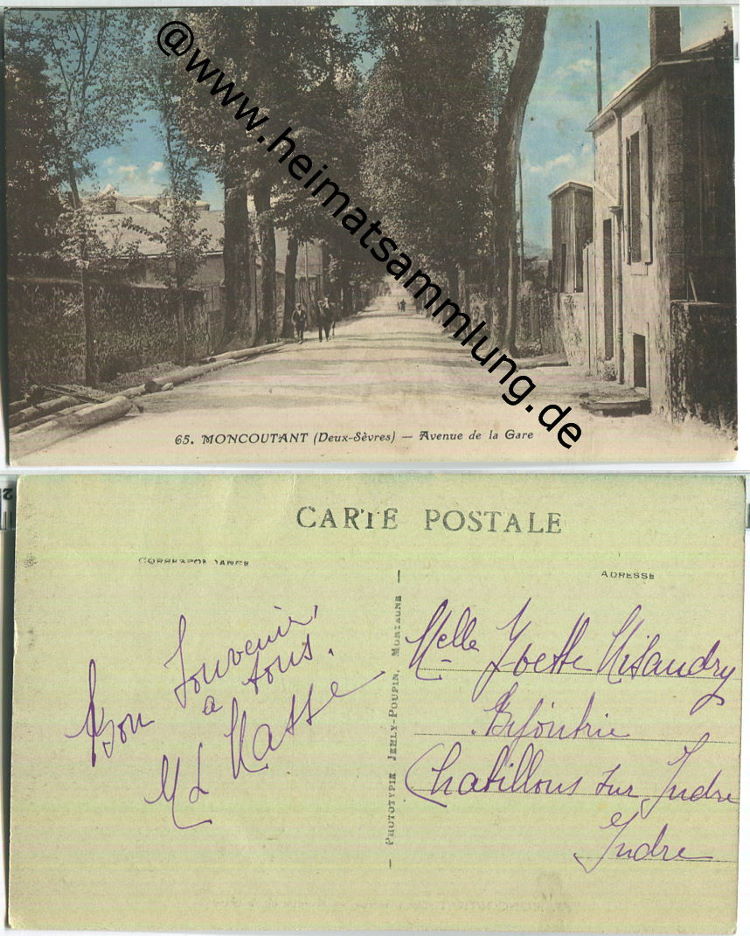 @www.heimatsammlung.de
65. MONCOUTANT (Deux-Sèvres) — Avenue de la Gare
CARTE POSTALE
CORRESPONDANCE
ADRESSE
Bon Souvenir
a tous.
PHOTOTYPIE JEHLY-POUPIN, MORTAGNE
Melle Yvette Misandry
Bijoutrie
Chatillons sur Indre
Indre